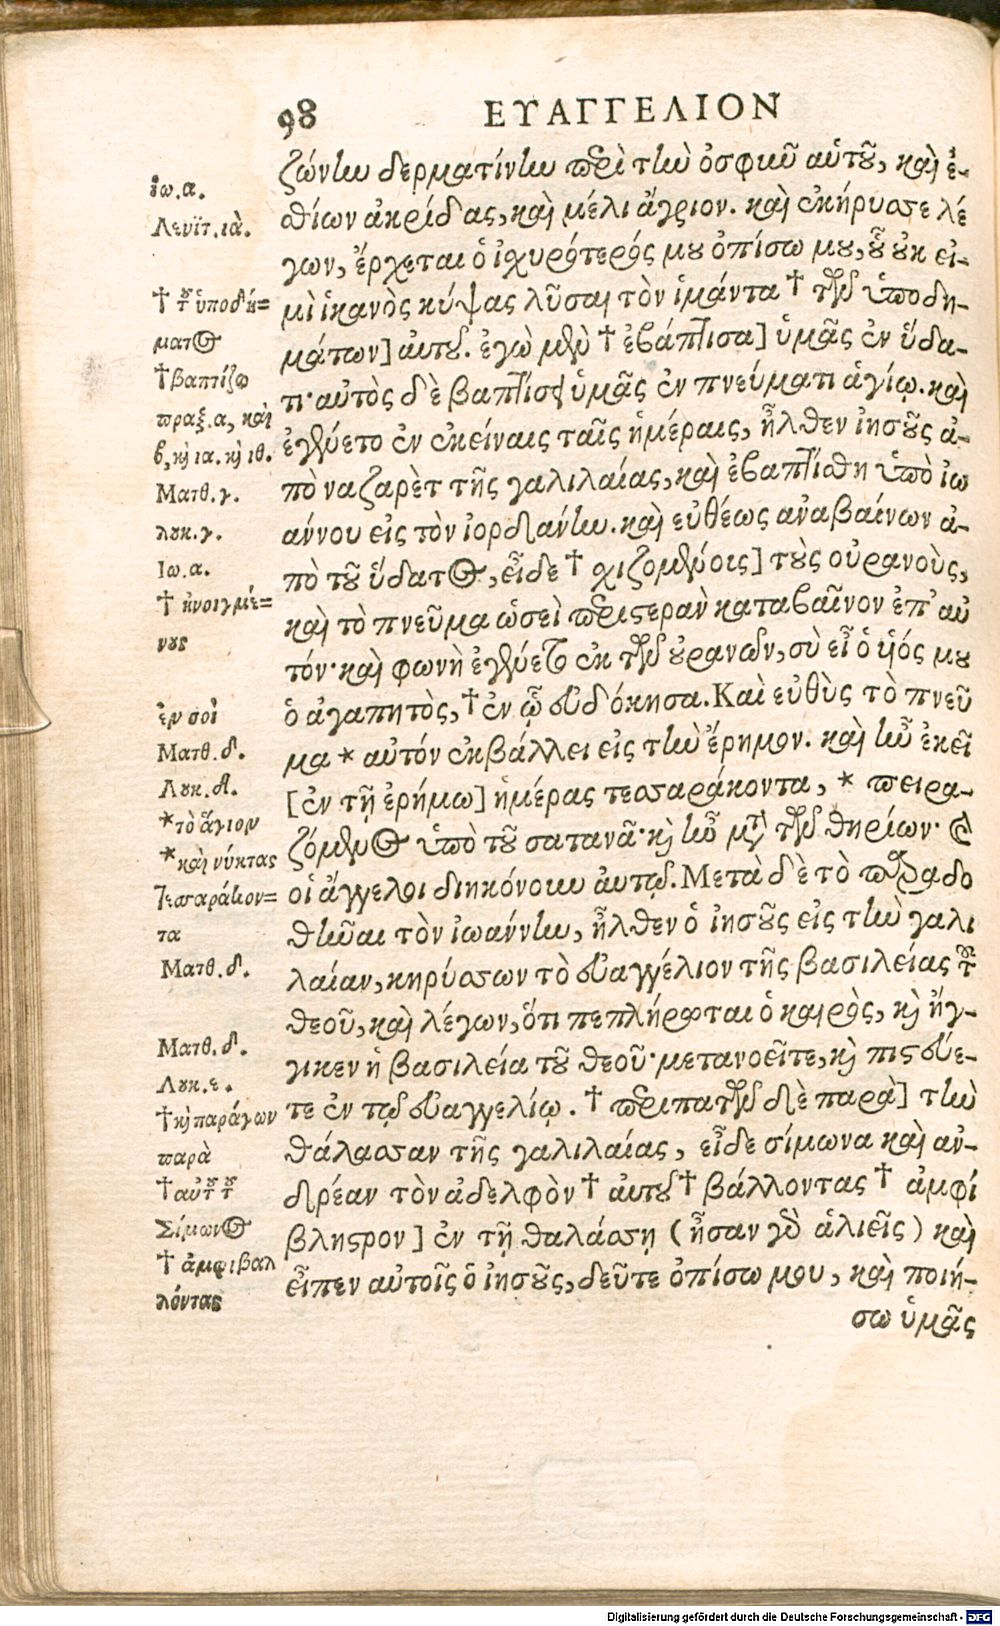 98 ΕΥΑΓΓΕΛΙΟΝ
ζώνην δερματίνην περὶ τὴν ὀσφὺν αὑτοῦ, καὶ ἐ-
σθίων ἀκρίδας, καὶ μέλι ἄγριον. καὶ ἐκήρυσσε λέ
γων, ἔρχεται ὁ ἰσχυρότερός μου ὀπίσω μου, οὗ οὐκ εἰ-
μὶ ἱκανὸς κύψας λῦσαι τὸν ἱμάντα † τῶν ὑποδη-
μάτων] αὐτοῦ. ἐγὼ μὲν † ἐβάπτισα] ὑμᾶς ἐν ὕδα-
τι· αὐτὸς δὲ βαπτίσει ὑμᾶς ἐν πνεύματι ἁγίῳ. καὶ
ἐγένετο ἐν ἐκείναις ταῖς ἡμέραις, ἦλθεν ἰησοῦς ἀ-
πὸ ναζαρὲτ τῆς γαλιλαίας, καὶ ἐβαπτίσθη ὑπὸ ἰω
άννου εἰς τὸν ἰορδάνην. καὶ εὐθέως ἀναβαίνων ἀ-
πὸ τοῦ ὕδατος, εἶδε † σχιζομένοις] τοὺς οὐρανοὺς,
καὶ τὸ πνεῦμα ὡσεὶ περιστερὰν καταβαῖνον ἐπ' αὐ
τόν· καὶ φωνὴ ἐγένετο ἐκ τῶν οὐρανῶν, σὺ εἶ ὁ υἱός μου
ὁ ἀγαπητὸς, † ἐν ᾧ εὐδόκησα. Καὶ εὐθὺς τὸ πνεῦ
μα * αὐτόν ἐκβάλλει εἰς τὴν ἔρημον. καὶ ἦν ἐκεῖ
[ἐν τῇ ἐρήμω] ἡμέρας τεσσαράκοντα, * πειρα-
ζόμενος ὑπὸ τοῦ σατανᾶ· καὶ ἦν μετὰ τῶν θηρίων· καὶ
οἱ ἄγγελοι διηκόνουν αὐτῷ. Μετὰ δὲ τὸ παραδο
θῆναι τὸν ἰωάννην, ἦλθεν ὁ ἰησοῦς εἰς τὴν γαλι
λαίαν, κηρύσσων τὸ εὐαγγέλιον τῆς βασιλείας τοῦ
θεοῦ, καὶ λέγων, ὅτι πεπλήρωται ὁ καιρὸς, καὶ ἤγ-
γικεν ἡ βασιλεία τοῦ θεοῦ· μετανοεῖτε, καὶ πιστεύε-
τε ἐν τῷ εὐαγγελίῳ. † περιπατῶν δὲ παρὰ] τὴν
θάλασσαν τῆς γαλιλαίας, εἶδε σίμωνα καὶ ἀν-
δρέαν τὸν ἀδελφὸν † αὐτοῦ † βάλλοντας † ἀμφί
βληστρον] ἐν τῇ θαλάσσῃ (ἦσαν γὰρ ἁλιεῖς) καὶ
εἶπεν αὐτοῖς ὁ ἰησοῦς, δεῦτε ὀπίσω μου, καὶ ποιή-
σω ὑμᾶς
ἰω.α.
Λευϊτ.ιὰ.
† τοῦ ὑποδή=
ματος
† βαπτίζω
πραξ.α, καὶ
β, καὶ ια. καὶ ιθ.
Ματθ.γ.
λουκ.γ.
Ιω.α.
† ἠνοιγμέ=
νους
ἐν σοὶ
Ματθ.δ.
Λουκ.δ.
*τὸ ἅγιον
*καὶ νύκτας
τεσσαράκον=
τα
Ματθ.δ.
Ματθ.δ.
Λουκ.ε.
† καὶ παράγων
παρὰ
† αὐτοῦ τοῦ
Σίμωνος
† ἀμφιβαλ
λόντας
Digitalisierung gefördert durch die Deutsche Forschungsgemeinschaft - DFG